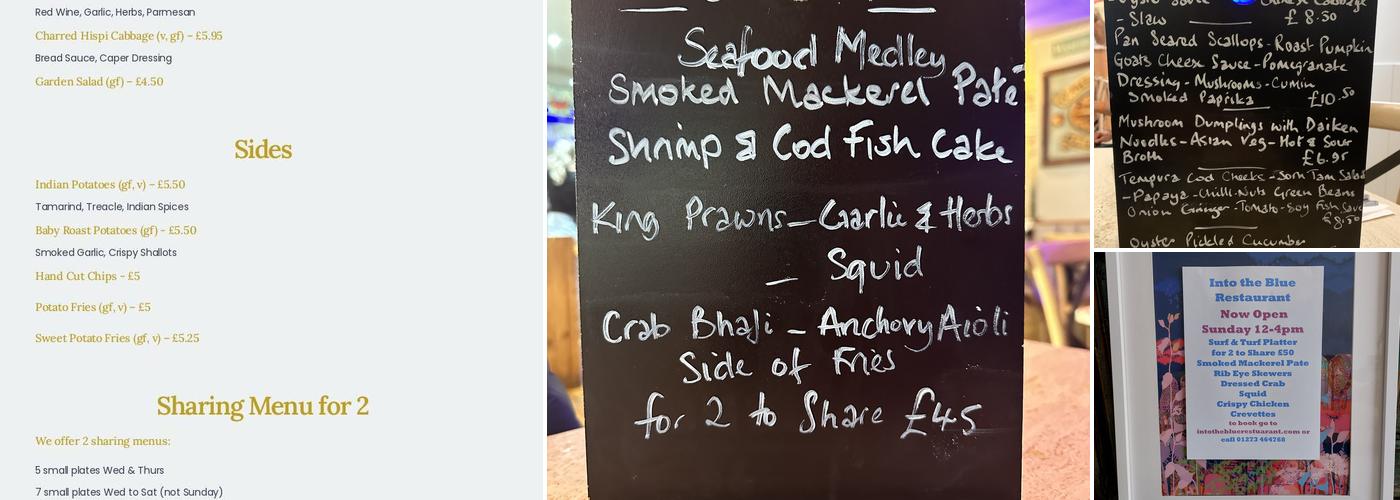 Red Wine, Garlic, Herbs, Parmesan
Charred Hispi Cabbage (v, gf) – £5.95
Bread Sauce, Caper Dressing
Garden Salad (gf) – £4.50
Sides
Indian Potatoes (gf, v) – £5.50
Tamarind, Treacle, Indian Spices
Baby Roast Potatoes (gf) - £5.50
Smoked Garlic, Crispy Shallots
Hand Cut Chips - £5
Potato Fries (gf, v) – £5
Sweet Potato Fries (gf, v) – £5.25
Sharing Menu for 2
We offer 2 sharing menus:
5 small plates Wed & Thurs
7 small plates Wed to Sat (not Sunday)
Seafood Medley
Smoked Mackerel Pate
Shrimp & Cod Fish Cake
King Prawns – Garlic & Herbs
– Squid
Crab Bhaji – Anchovy Aioli
Side of Fries
for 2 to Share £45
- Slaw £8.50
Pan Seared Scallops - Roast Pumpkin
Goats Cheese Sauce - Pomegranate
Dressing - Mushrooms - Cumin
Smoked Paprika £10.50
Mushroom Dumplings with Daiken
Noodles - Asian Veg - Hot & Sour
Broth £6.95
Tempura Cod Cheeks - Som Tam Salad
- Papaya - Chilli - Nuts Green Beans
Onion Ginger - Tomato - Soy Fish
£8.50
Oyster Pickled Cucumber
Into the Blue
Restaurant
Now Open
Sunday 12-4pm
Surf & Turf Platter
for 2 to Share £50
Smoked Mackerel Pate
Rib Eye Skewers
Dressed Crab
Squid
Crispy Chicken
Crevettes
to book go to
intothebluerestuarant.com or
call 01273 464768